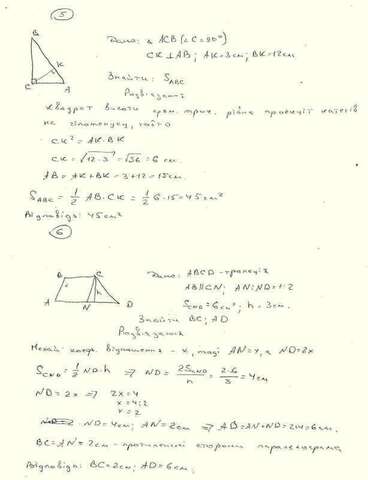 5
B
K
C
A
Дано: △ ACB (∠C=90°)
CK⊥AB; AK=3см; BK=12см
Знайти: S_ABC
Розв'язання
Квадрат висоти прям. трик. рівна проекції катетів
на гіпотенузу, тобто
CK² = AK·BK
CK = √12·3 = √36 = 6 см.
AB = AK+BK = 3+12 = 15см.
S_ABC = 1/2 AB·CK = 1/2 6·15 = 45см²
Відповідь: 45см²
6
B C
h
A N D
Дано: ABCD-трапеція
AB||CN; AN:ND=1:2
S_CND=6см²; h=3см.
Знайти BC; AD
Розв'язання
Нехай коеф. відношення - x, тоді AN=x, а ND=2x
S_CND = 1/2 ND·h ⇒ ND = 2S_CND/h = 2·6/3 = 4см
ND=2x ⇒ 2x=4
x=4:2
x=2
ND=4см; AN=2см ⇒ AD=AN+ND=2+4=6см.
BC=AN=2см - протилежні сторони паралелограма
Відповідь: BC=2см; AD=6см;